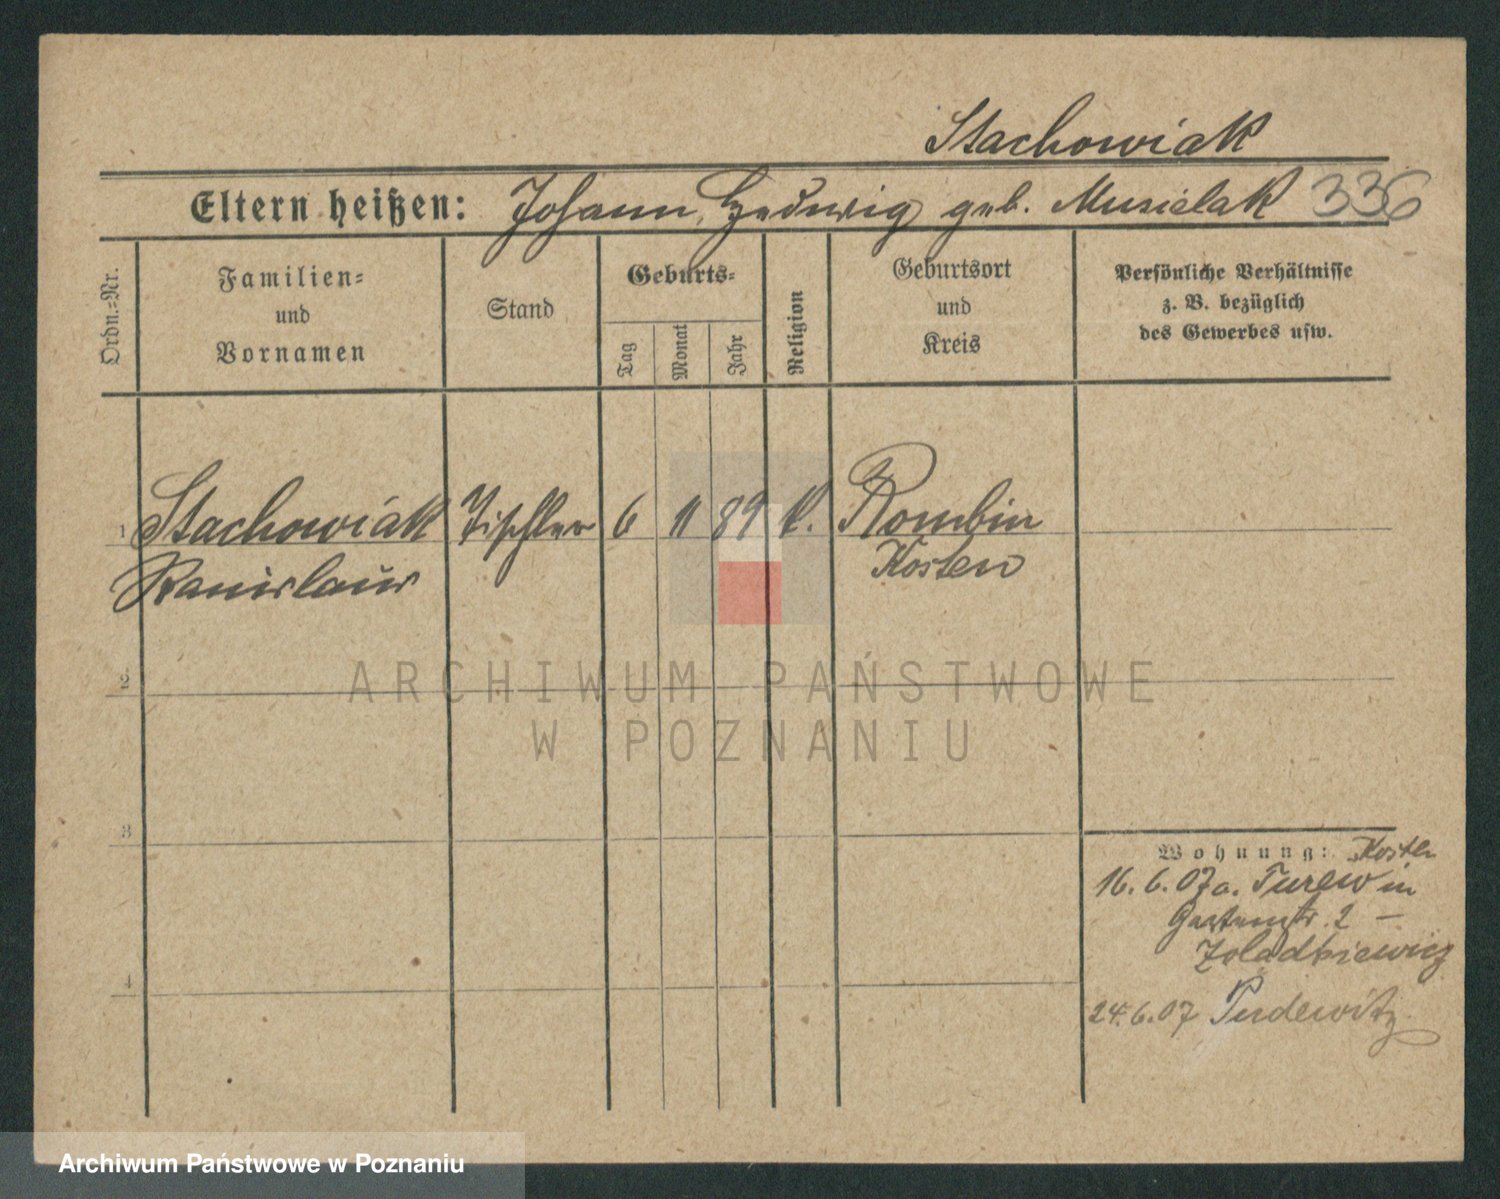 Stachowiak
Eltern heißen: Johann, Hedwig geb. Musielak 336
Ordn.=Nr.
Familien=
und
Vornamen
Stand
Geburts=
Tag
Monat
Jahr
Religion
Geburtsort
und
Kreis
Persönliche Verhältnisse
z. B. bezüglich
des Gewerbes usw.
1 Stachowiak Tischler 6 11 89 k. Rombin
Stanislaus Kosten
2
3
4
Wohnung: Kosten
16.6.07 a. Turew in
Gartenstr. 2 –
Zoladkiewicz
24.6.07 Pudewitz
ARCHIWUM PAŃSTWOWE
W POZNANIU
Archiwum Państwowe w Poznaniu